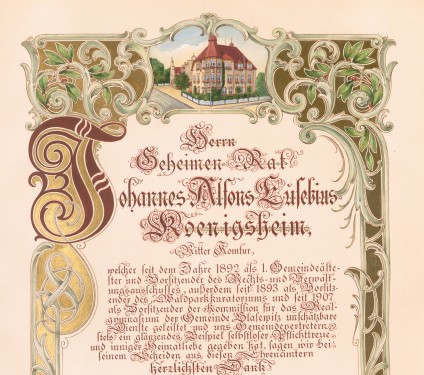 Herrn
Geheimen Rat
Johannes Alfons Eusebius
Koenigsheim,
Ritter Komtur,
welcher seit dem Jahre 1892 als 1. Gemeindeälte-
ster und Vorsitzender des Rechts- und Verwalt-
ungsausschusses, außerdem seit 1893 als Vorsitz-
ender des Waldparkkuratoriums und seit 1907
als Vorsitzender der Kommission für das Real-
gymnasium der Gemeinde Blasewitz unschätzbare
Dienste geleistet und uns Gemeindevertretern
stets ein glänzendes Beispiel selbstloser Pflichttreue
und inniger Heimatliebe gegeben hat, sagen wir bei
seinem Scheiden aus diesen Ehrenämtern
herzlichsten Dank